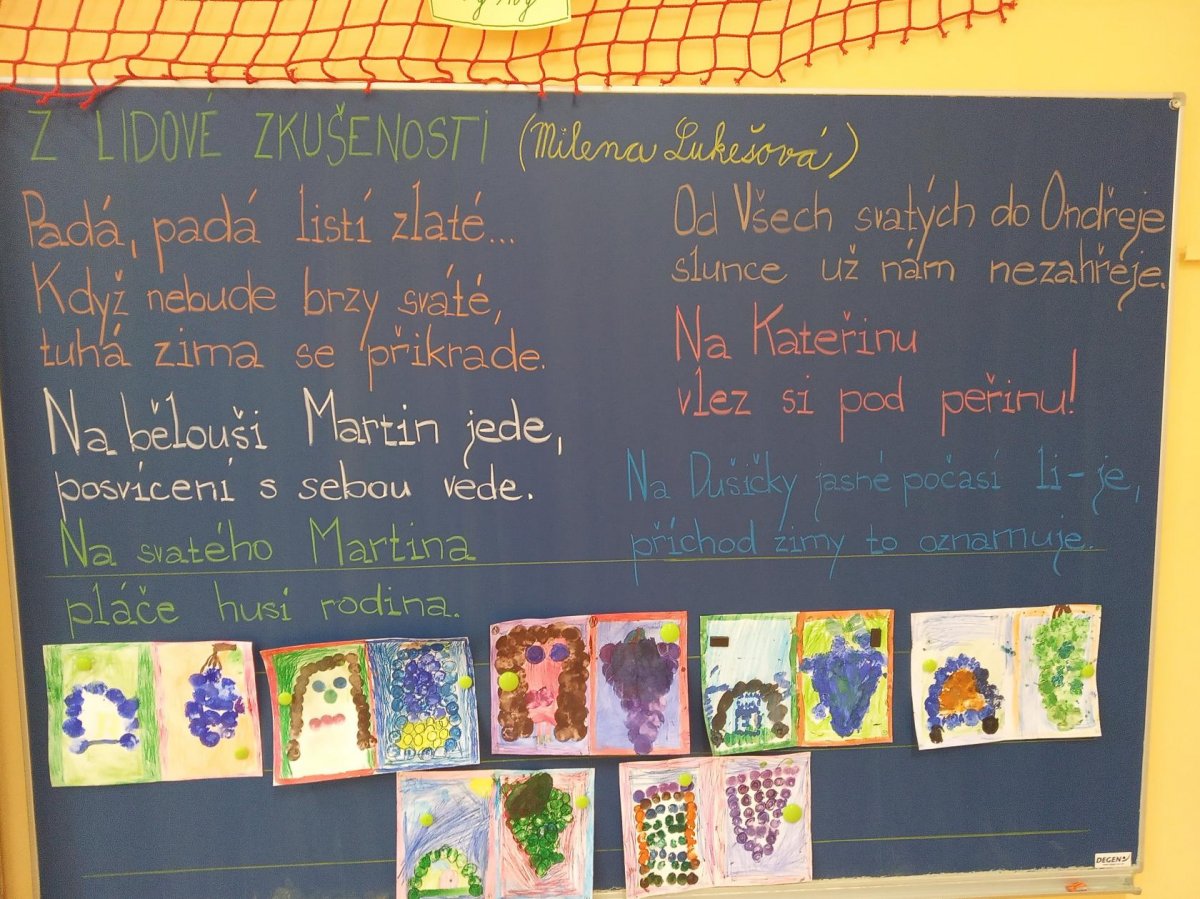 Z LIDOVÉ ZKUŠENOSTI (Milena Lukešová)
Padá, padá listí zlaté...
Když nebude brzy sváté,
tuhá zima se přikrade.
Na bělouši Martin jede,
posvícení s sebou vede.
Na svatého Martina
pláče husí rodina.
Od Všech svatých do Ondřeje
slunce už nám nezahřeje.
Na Kateřinu
vlez si pod peřinu!
Na Dušičky jasné počasí li-je,
příchod zimy to oznamuje.
DEGEN